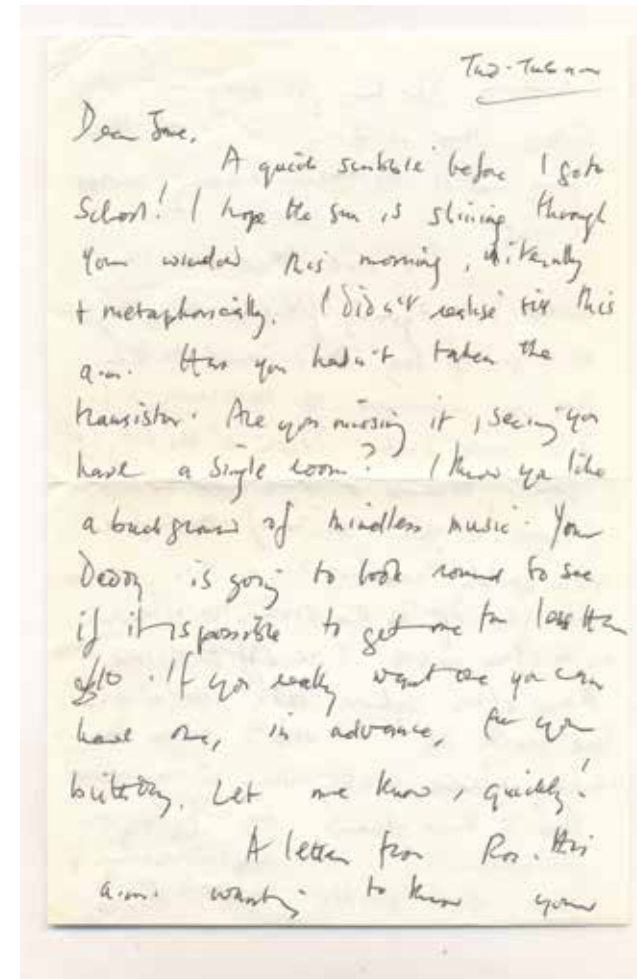 Dear Jane,
A quick scribble before I go to
School! I hope the sun is shining through
your window this morning, literally
+ metaphorically. I didn't realise till this
a.m. that you hadn't taken the
transistor. Are you missing it, seeing you
have a single room? I know you like
a background of mindless music. Your
Daddy is going to look round to see
if it is possible to get one for less than
£10. If you really want one you can
have one, in advance, for your
birthday. Let me know, quickly!
A letter from Ros. this
a.m. wanting to know your